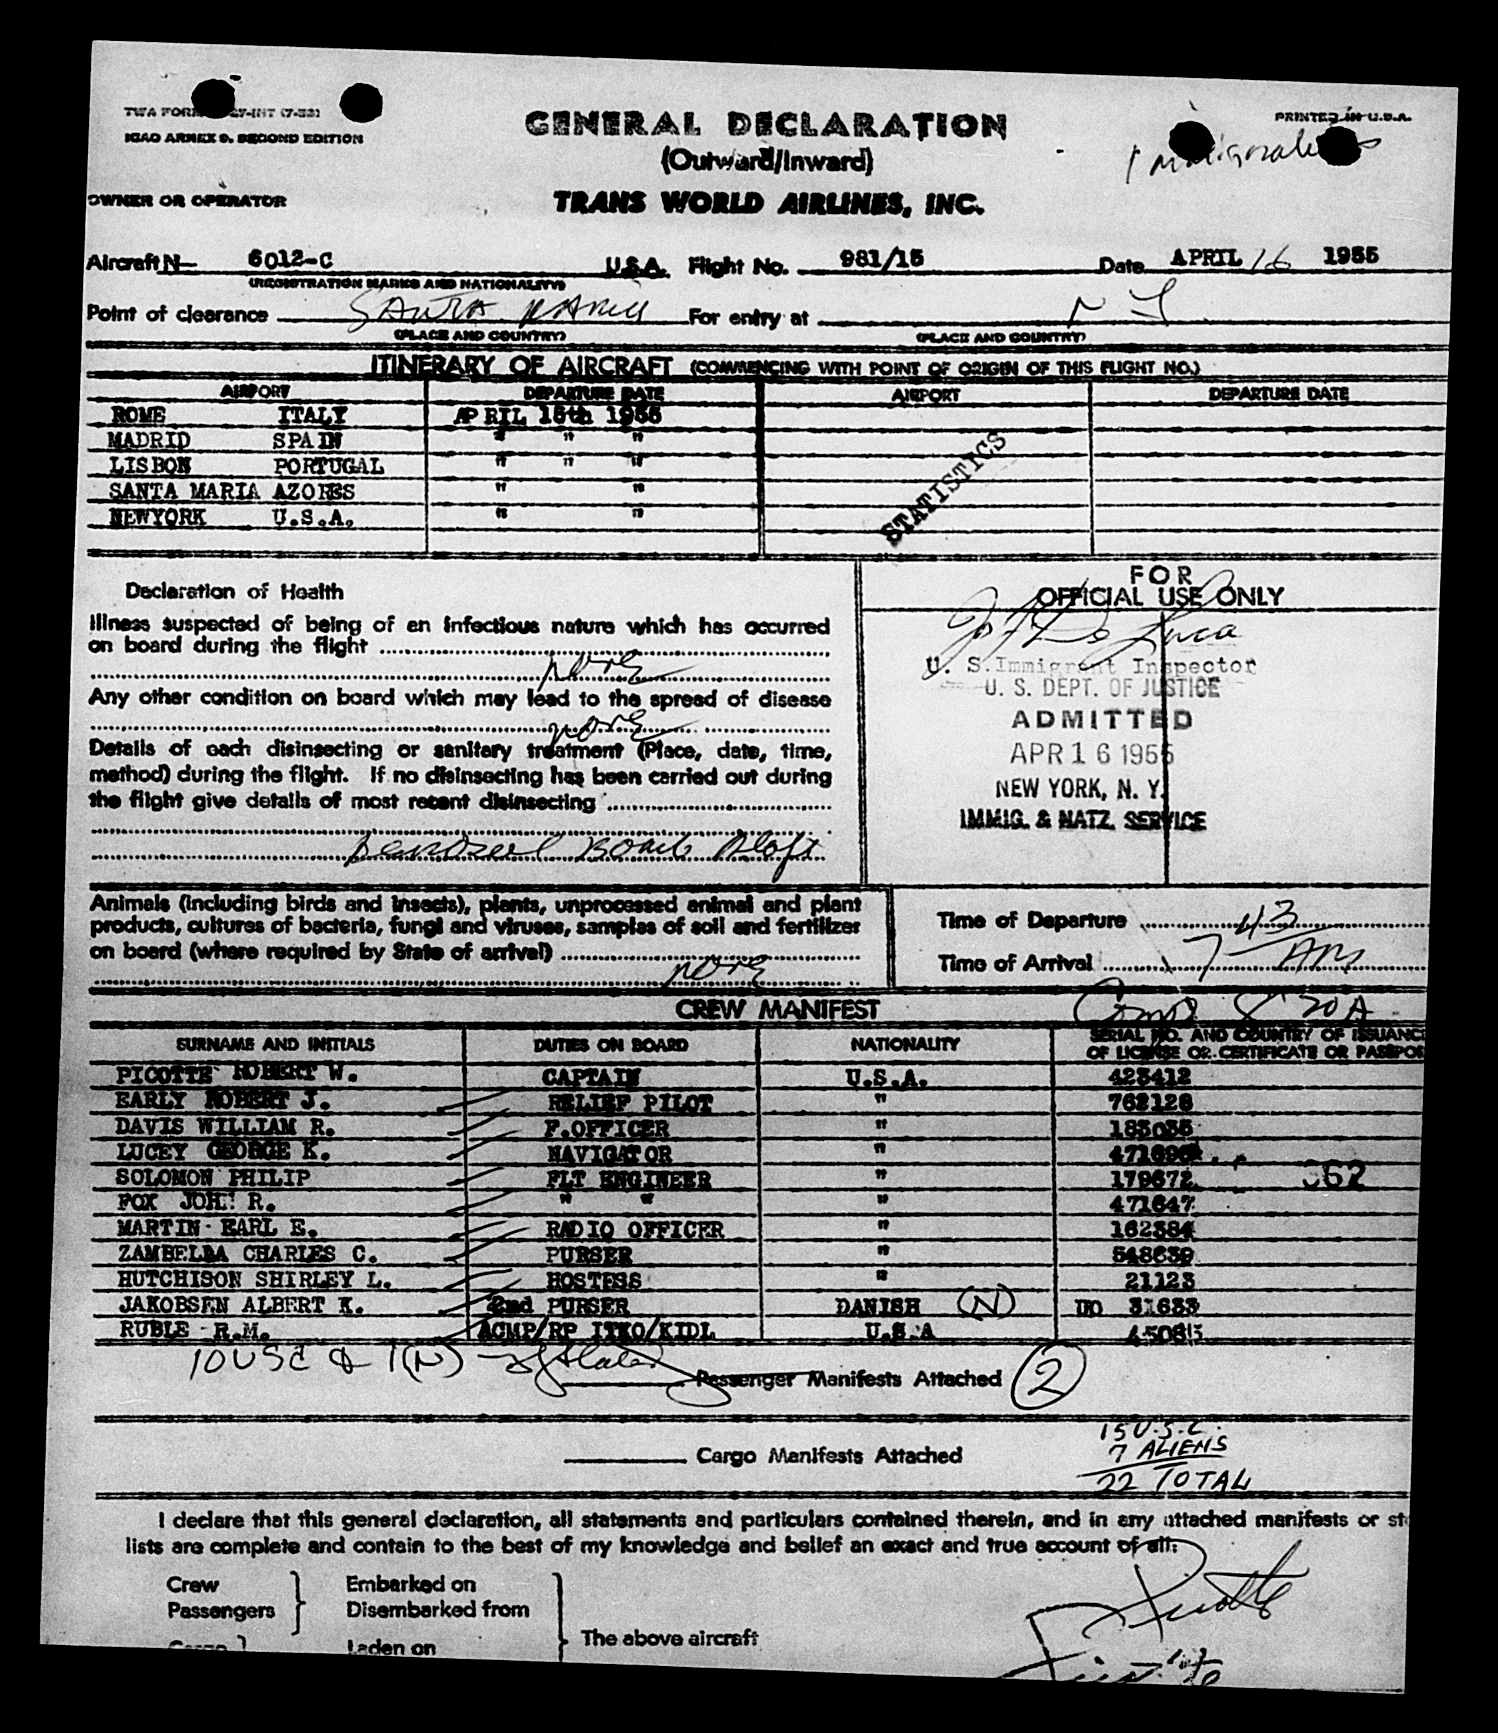 TWA FORM 27-INT (7-53)
ICAO ANNEX 9. SECOND EDITION
GENERAL DECLARATION
PRINTED IN U.S.A.
(Outward/Inward)
Immigration
OWNER OR OPERATOR
TRANS WORLD AIRLINES, INC.
Aircraft N- 6012-C U.S.A. Flight No. 981/15 Date APRIL 16 1955
(REGISTRATION MARKS AND NATIONALITY)
Point of clearance SANTA MARIA For entry at N Y
(PLACE AND COUNTRY) (PLACE AND COUNTRY)
ITINERARY OF AIRCRAFT (COMMENCING WITH POINT OF ORIGIN OF THIS FLIGHT NO.)
AIRPORT DEPARTURE DATE AIRPORT DEPARTURE DATE
ROME ITALY APRIL 15th 1955
MADRID SPAIN " " "
LISBON PORTUGAL " " "
SANTA MARIA AZORES " "
NEWYORK U.S.A. " "
STATISTICS
FOR
OFFICIAL USE ONLY
Declaration of Health
Illness suspected of being of an infectious nature which has occurred
on board during the flight
none
Any other condition on board which may lead to the spread of disease
none
Details of each disinsecting or sanitary treatment (Place, date, time,
method) during the flight. If no disinsecting has been carried out during
the flight give details of most recent disinsecting
Bomb Aloft
U. S. Immigrant Inspector
U. S. DEPT. OF JUSTICE
ADMITTED
APR 16 1955
NEW YORK, N. Y.
IMMIG. & NATZ. SERVICE
Animals (including birds and insects), plants, unprocessed animal and plant
products, cultures of bacteria, fungi and viruses, samples of soil and fertilizer
on board (where required by State of arrival)
none
Time of Departure
Time of Arrival
CREW MANIFEST
SURNAME AND INITIALS DUTIES ON BOARD NATIONALITY SERIAL NO. AND COUNTRY OF ISSUANC
OF LICENSE OR CERTIFICATE OR PASSPO
PICOTTE ROBERT W. CAPTAIN U.S.A. 423412
EARLY ROBERT J. RELIEF PILOT " 762128
DAVIS WILLIAM R. F.OFFICER "
LUCEY GEORGE K. NAVIGATOR "
SOLOMON PHILIP FLT ENGINEER " 179672
FOX JOHN R. " " " 471647
MARTIN EARL E. RADIO OFFICER " 162384
ZAMBELDA CHARLES C. PURSER " 548639
HUTCHISON SHIRLEY L. HOSTESS " 21123
JAKOBSEN ALBERT K. 2nd PURSER DANISH (N) 31633
RUBLE R.M. ACMP/RP ITKO/KIDL U.S.A
362
10 USC & 1(N)
Passenger Manifests Attached 2
15 U.S.C.
7 ALIENS
22 TOTAL
Cargo Manifests Attached
I declare that this general declaration, all statements and particulars contained therein, and in any attached manifests or st
lists are complete and contain to the best of my knowledge and belief an exact and true account of all:
Crew Embarked on
Passengers Disembarked from
Cargo Laden on
The above aircraft
Picotte